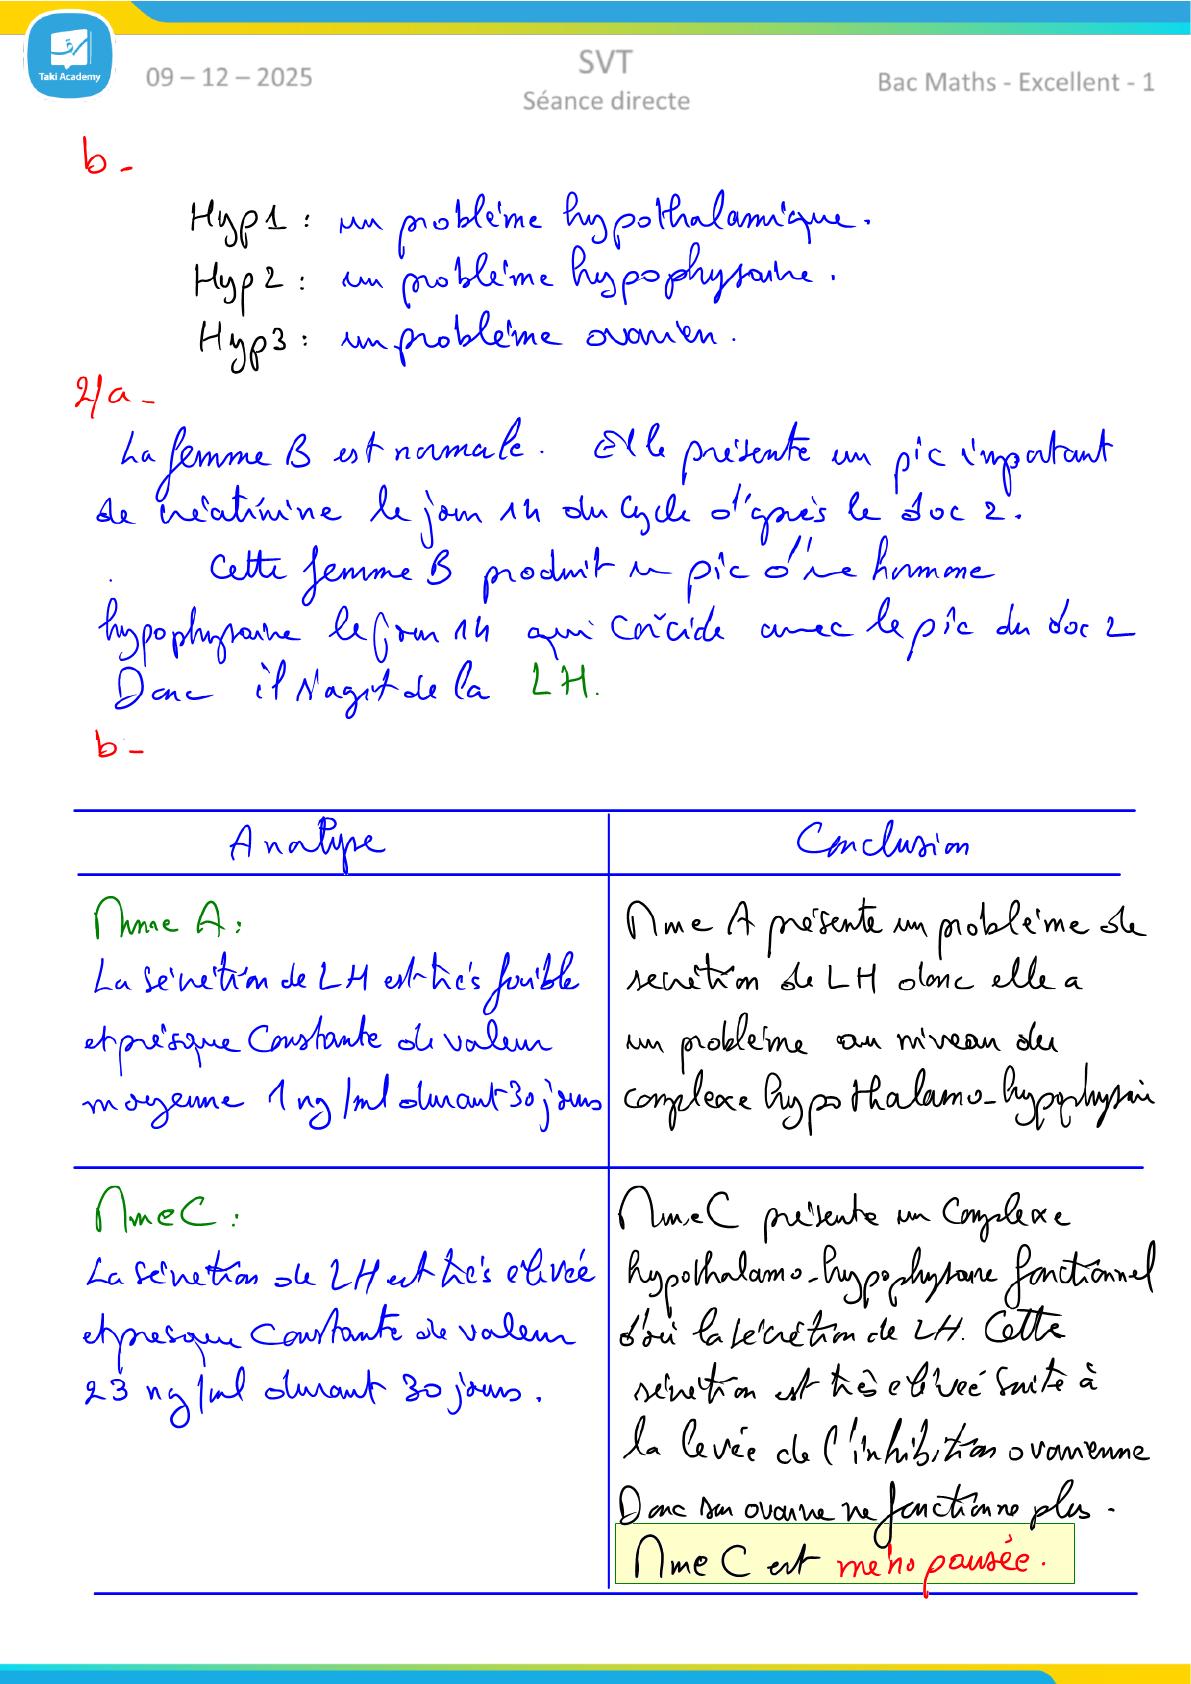 Taki Academy
09 – 12 – 2025
SVT
Séance directe
Bac Maths - Excellent - 1
b -
Hyp1 : un problème hypothalamique.
Hyp2 : un problème hypophysaire.
Hyp3 : un problème ovarien.
2/a -
La femme B est normale. Elle présente un pic important
de créatinine le jour 14 du cycle d'après le doc 2.
Cette femme B produit un pic d'une hormone
hypophysaire le jour 14 qui coïcide avec le pic du doc 2
Donc il s'agit de la LH.
b -
Analyse
Conclusion
Mme A :
La sécrétion de LH est très faible
et présque constante de valeur
moyenne 1 ng/ml durant 30 jours
Mme A présente un problème de
secrétion de LH donc elle a
un problème au niveau du
complexe hypothalamo-hypophysaire
Mme C :
La sécrétion de LH est très élevée
et presque constante de valeur
23 ng/ml durant 30 jours.
Mme C présente un complexe
hypothalamo-hypophysaire fonctionnel
d'où la sécrétion de LH. Cette
sécrétion est très élevée suite à
la levée de l'inhibition ovarienne
Donc son ovaire ne fonctionne plus.
Mme C est ménopausée.